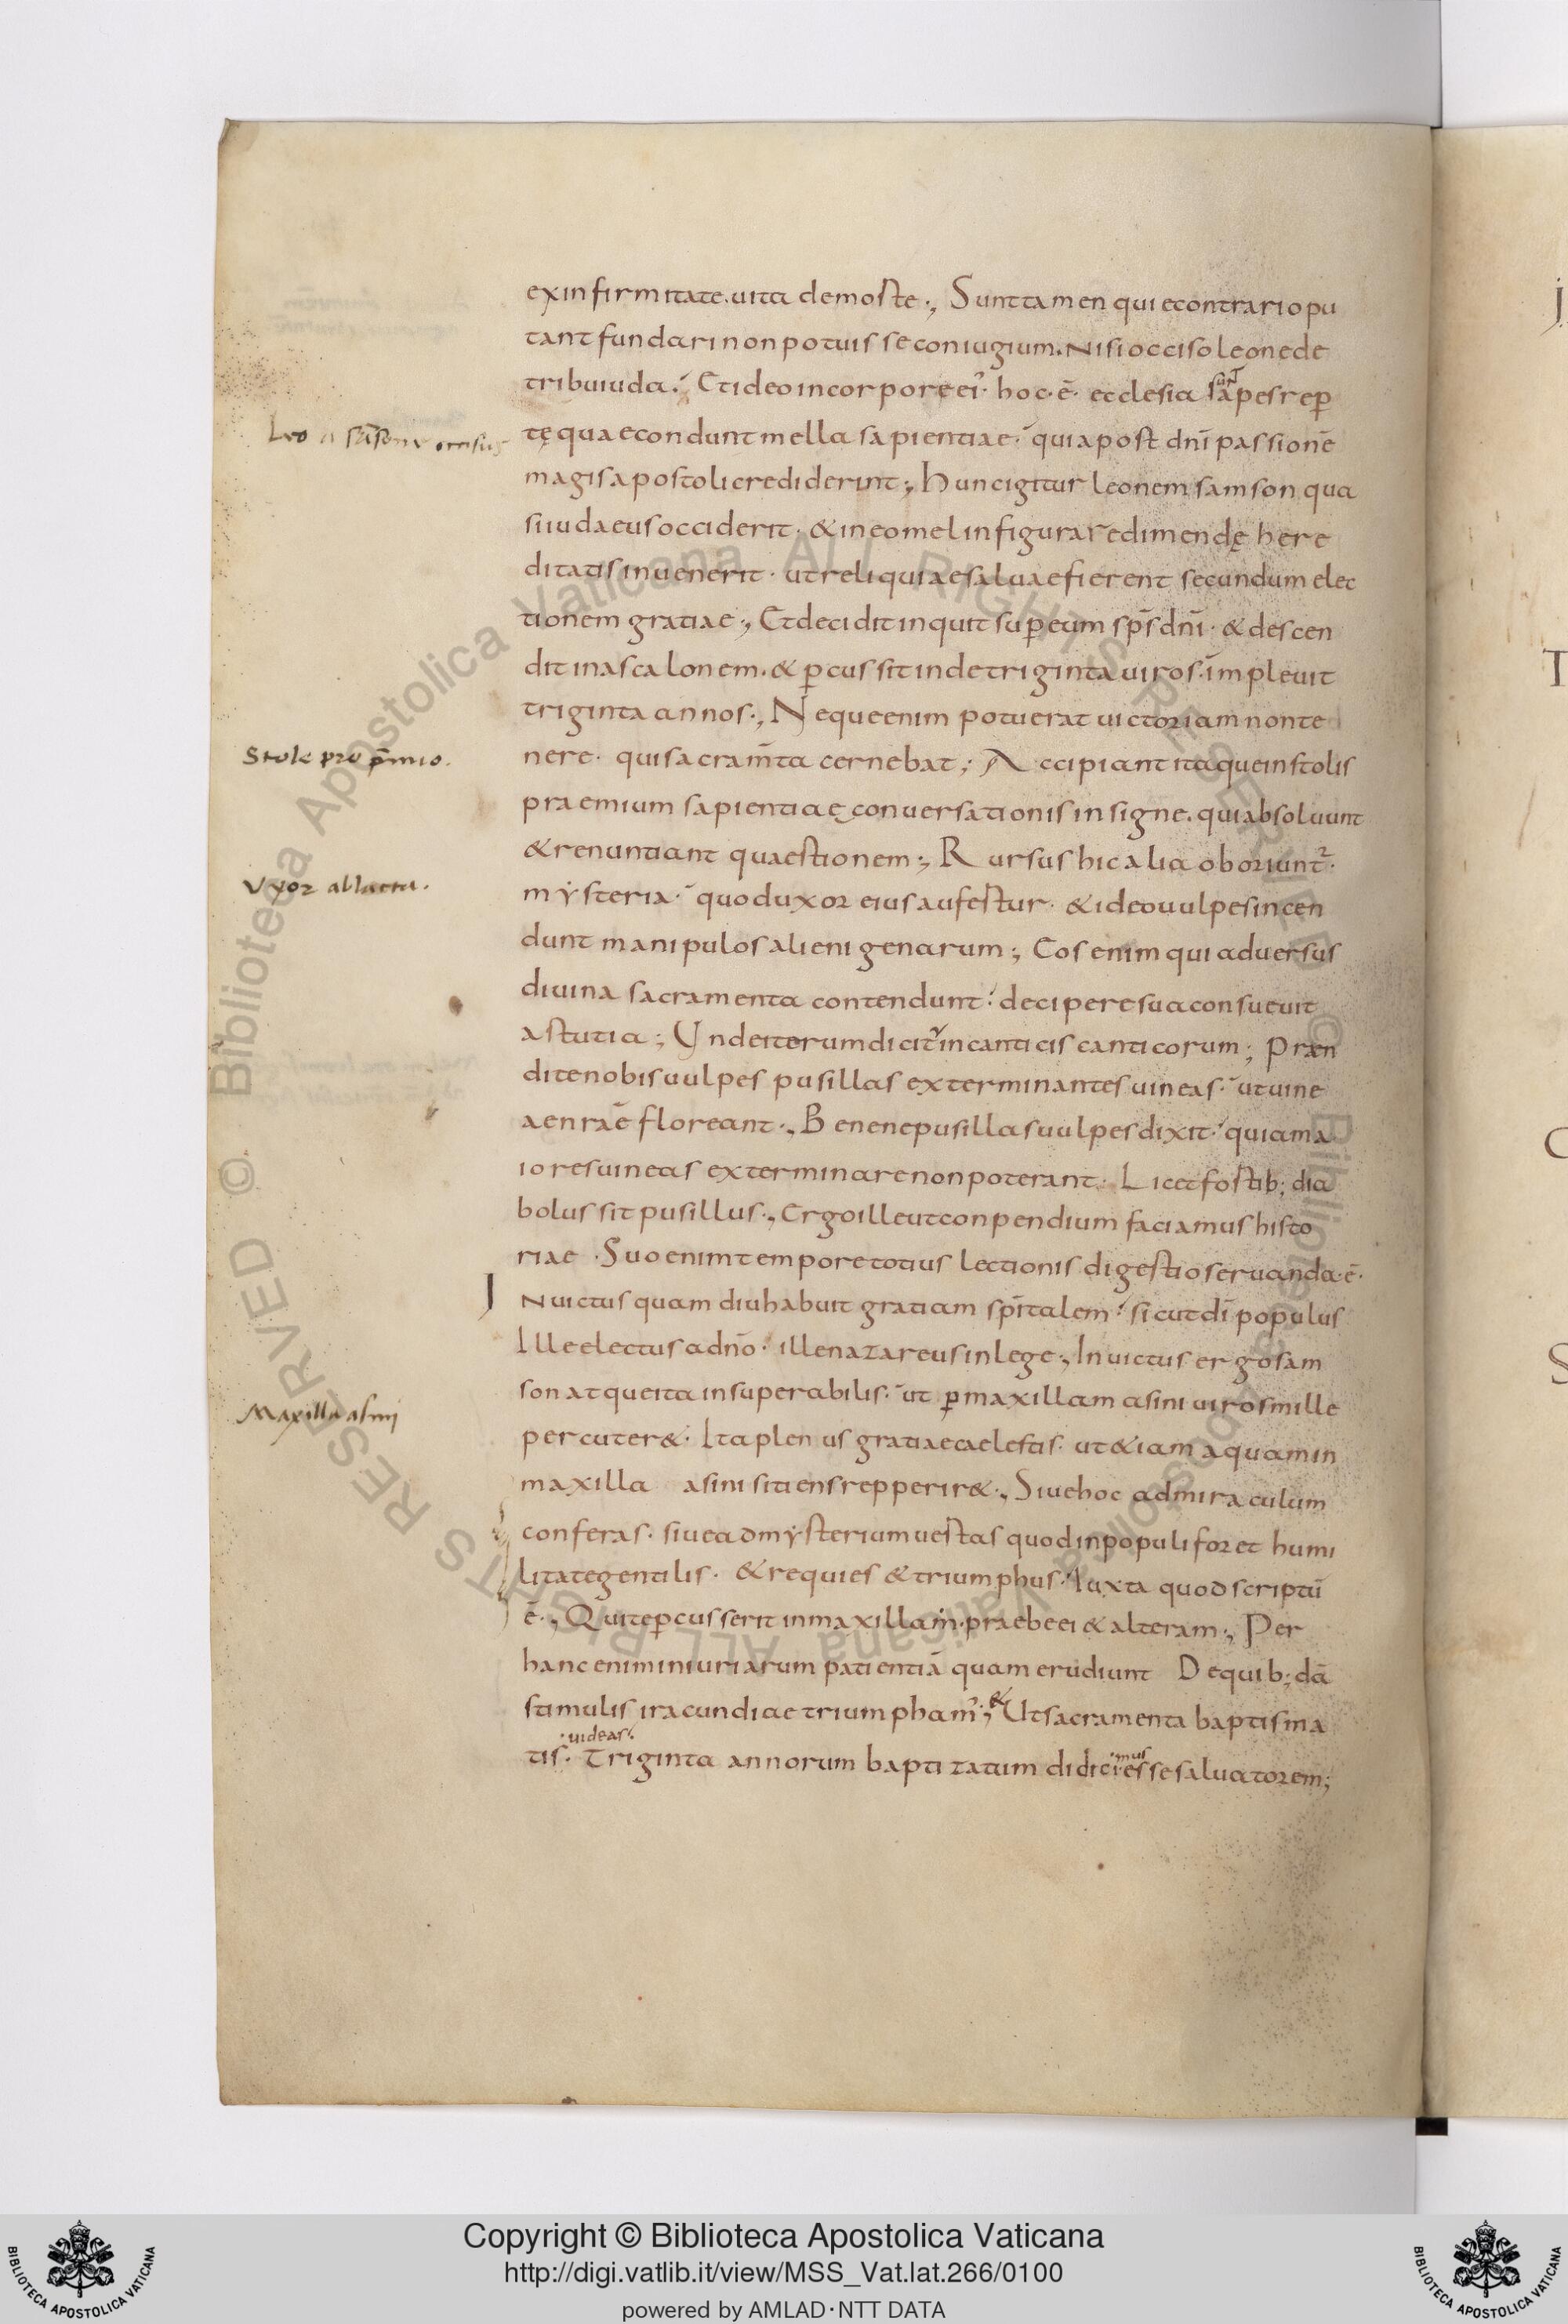 ex infirmitate. uita de morte·, Sunt tamen qui econtrario pu
tant fundari non potuisse coniugium. Nisi occiso leone de
tribu iuda. Et ideo in corpore ei᾽· hoc·ē· ecclesia sunt apes reper
Leo a sāsone occisus
tę quae condunt mella sapientiae· quia post dn̄i passionē
magis apostoli crediderint·, Hunc igitur leonem samson qua
si iudaeus occiderit· & in eo mel in figura redimendę here
ditatis inuenerit· ut reliquiae saluae fierent secundum elec
tionem gratiae·, Et decidit inquit super eum sp̄s dn̄i· & descen
dit in ascalonem. & ꝑcussit inde triginta uiros· impleuit
triginta annos·, Neque enim potuerat uictoriam non te
Stole pro p̄mio.
nere· qui sacram̄ta cernebat; Accipiant itaque in stolis
praemium sapientiae conuersationis insigne. qui absoluunt
& renuntiant quaestionem·, Rursus hic alia oboriunt᾽·
Vxor ablacta.
mẏsteria· quod uxor eius aufertur· & ideo uulpes incen
dunt manipulos alienigenarum; Eos enim qui aduersus
diuina sacramenta contendunt· decipere sua consueuit
astutia; Unde iterum dicit᾽ in canticis canticorum; Præn
dite nobis uulpes pusillas exterminantes uineas· ut uine
ae nr̄ae floreant·, Bene ne pusillas uulpes dixit· quia ma
iores uineas exterminare non poterant· Licet fortib; dia
bolus sit pusillus·, Ergo ille ut conpendium faciamus histo
riae· Suo enim tempore totius lectionis digestio seruanda·ē·
Inuictus quam diu habuit gratiam sp̄italem· sicut dī populus
Ille electus a dn̄o· ille nazareus in lege·, Inuictus ergo sam
son atque ita insuperabilis· ut ꝑ maxillam asini uiros mille
Maxilla asini
percuter&· Ita plenus gratiae caelestis· ut &iam aquam in
maxilla asini sitiens repperir&·, Siue hoc ad miraculum
conferas· siue ad mẏsterium uertas quod in populi foret humi
litate gentilis· & requies & triumphus· Iuxta quod scriptū
ē·, Qui te ꝑcusserit in maxillam· praebe ei & alteram·, Per
hanc enim iniuriarum patientiā quam erudiunt De quib; dā
stimulis iracundiae triumpham᾽; & Ut sacramenta baptisma
tis· uideas· Triginta annorum baptizatum didicimus esse saluatorem;
Copyright © Biblioteca Apostolica Vaticana
http://digi.vatlib.it/view/MSS_Vat.lat.266/0100
powered by AMLAD·NTT DATA
BIBLIOTECA APOSTOLICA VATICANA
BIBLIOTECA APOSTOLICA VATICANA